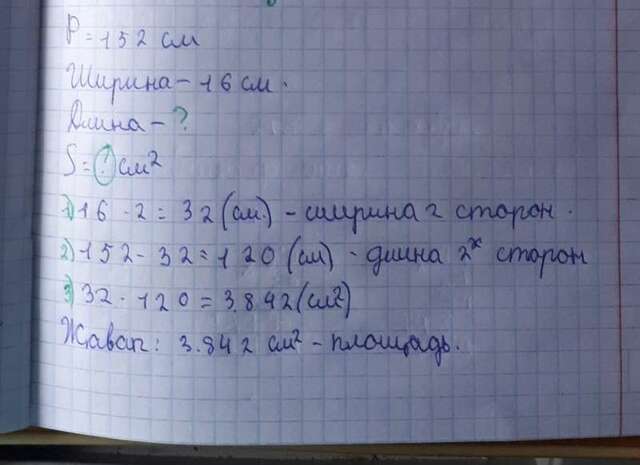 P = 152 см
Ширина - 16 см.
Длина - ?
S = ? см²
1) 16 · 2 = 32 (см.) - ширина 2 сторон.
2) 152 - 32 = 120 (см) - длина 2ˣ сторон
3) 32 · 120 = 3.842 (см²)
Жавап: 3.842 см² - площадь.